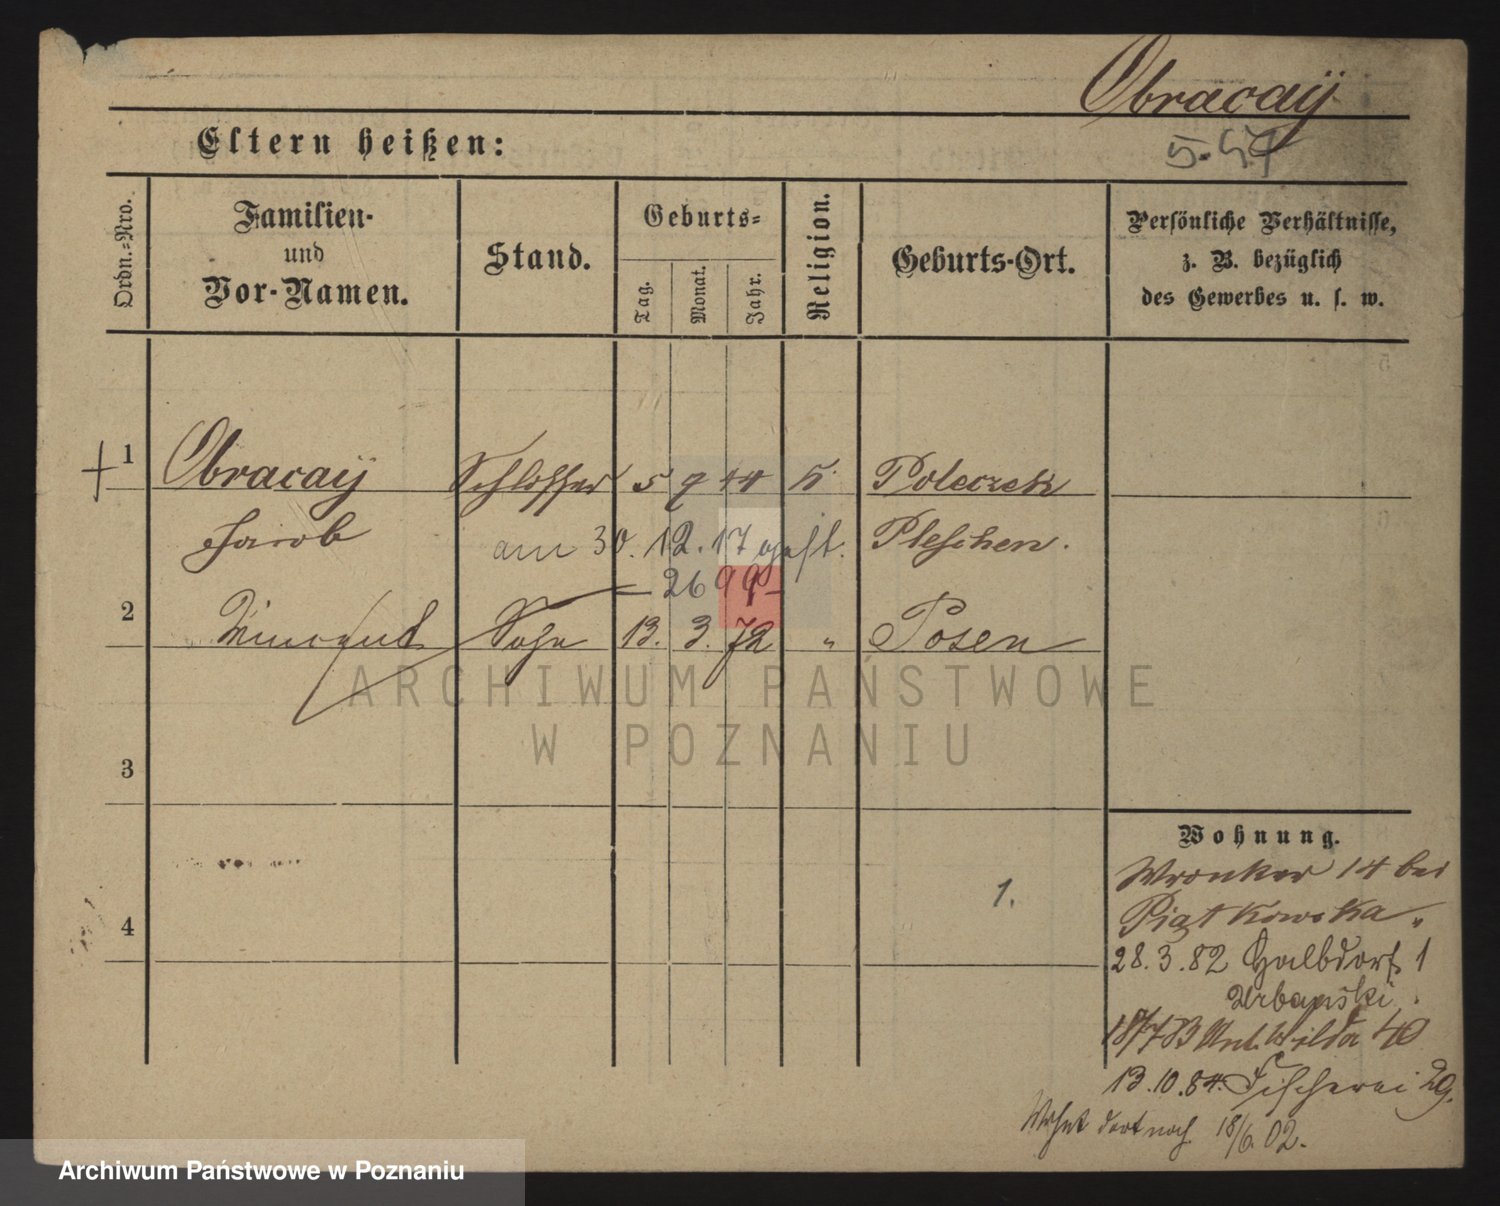 Obracaÿ
Eltern heißen:
Ordn.-Nro.
Familien-
und
Vor-Namen.
Stand.
Geburts-
Tag.
Monat.
Jahr.
Religion.
Geburts-Ort.
Persönliche Verhältnisse,
z. B. bezüglich
des Gewerbes u. s. w.
1 Obracaÿ Schlosser 5 9 44 k. Poleczek
Jacob am 30. 12. 17 gest. Pleschen.
26 99
2 Vincent Sohn 13. 3. 72 " Posen
ARCHIWUM PAŃSTWOWE
W POZNANIU
3
Wohnung.
Wronker 14 bei
Piątkowska
1.
4
28.3.82 Halbdorf 1
Urbański.
18/7 83 Unt. Wilda 40
13.10.84. Fischerei 29.
Wohnt dort noch 18/6. 02.
Archiwum Państwowe w Poznaniu